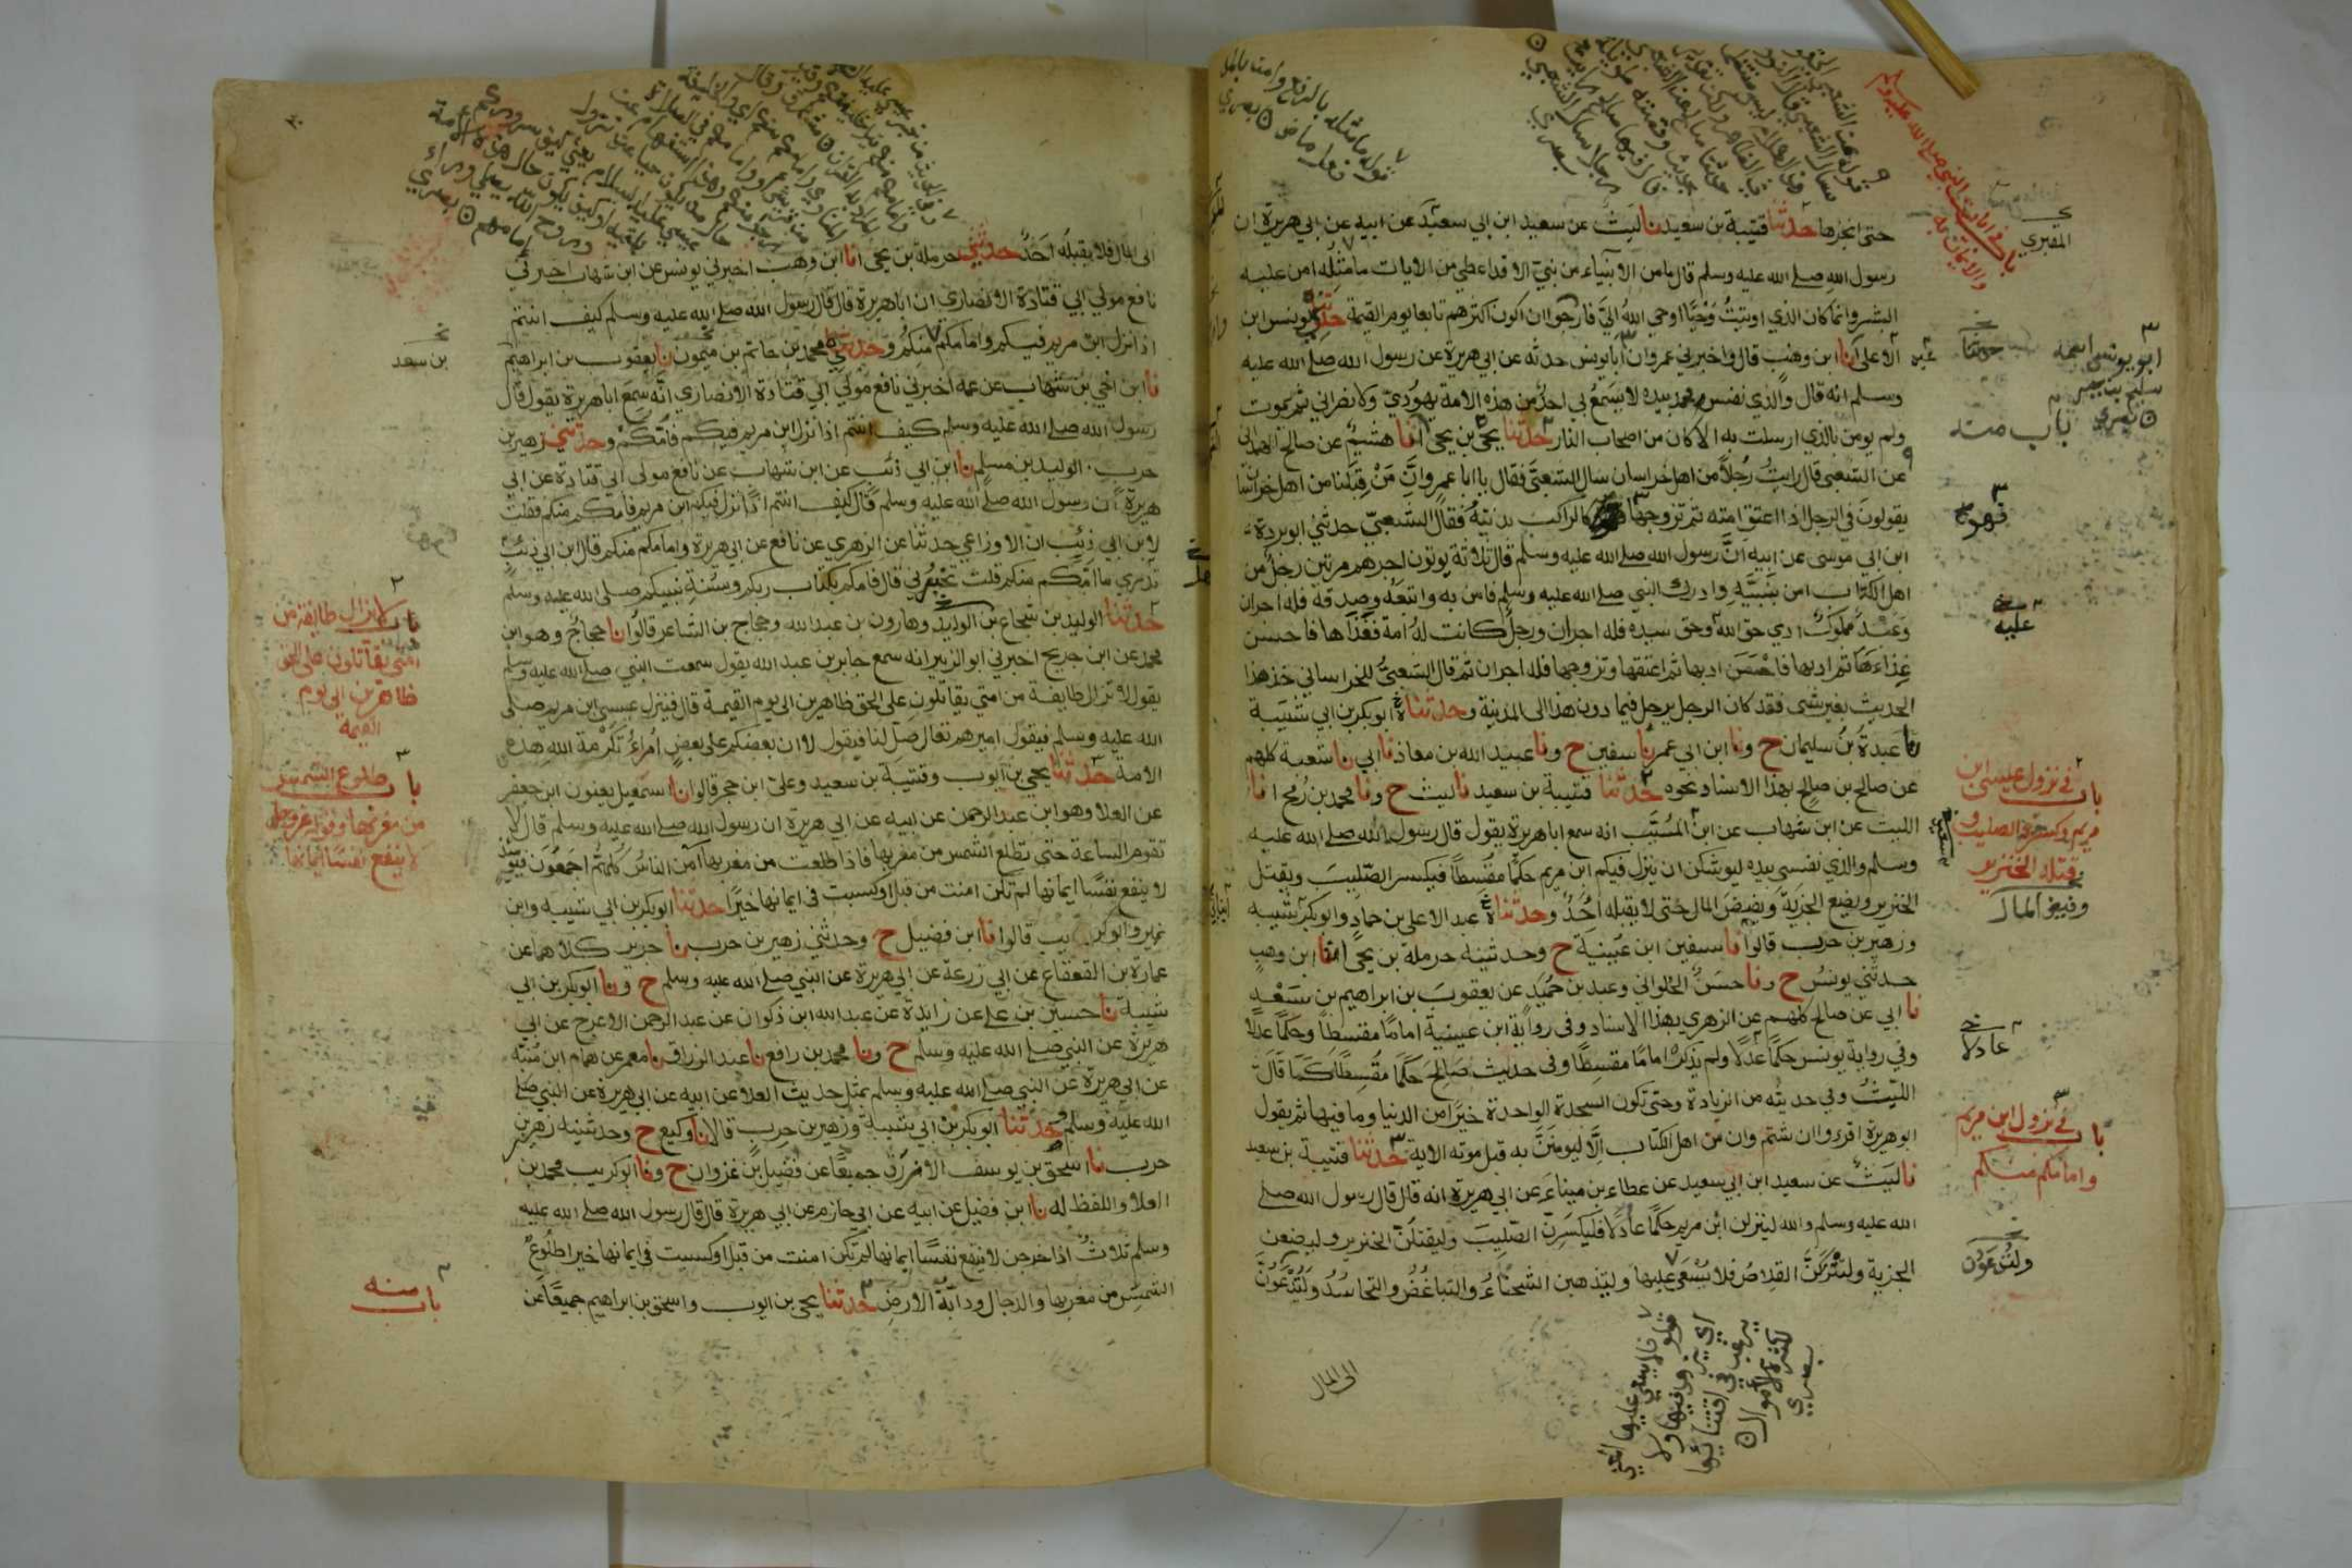 حتى انجزها حدثنا قتيبة بن سعيد نا ليث عن سعيد ابن ابي سعيد عن ابيه عن ابي هريرة ان
رسول الله صلى الله عليه وسلم قال ما من الانبياء من نبي الا قد اعطي من الايات ما مثله امن عليه
البشر وانما كان الذي اوتيت وحيا اوحى الله الي فارجوا ان اكون اكثرهم تابعا يوم القيمة حدثني يونس ابن
عبد الاعلى انا ابن وهب قال واخبرني عمرو ان ابا يونس حدثه عن ابي هريرة عن رسول الله صلى الله عليه
وسلم انه قال والذي نفس محمد بيده لا يسمع بي احد من هذه الامة يهودي ولا نصراني ثم يموت
ولم يومن بالذي ارسلت به الا كان من اصحاب النار حدثنا يحيى بن يحيى انا هشيم عن صالح الهمداني
عن الشعبي قال رايت رجلا من اهل خراسان سال الشعبي فقال يا ابا عمرو ان من قبلنا من اهل خراسان
يقولون في الرجل اذا اعتق امته ثم تزوجها كالراكب بدنته فقال الشعبي حدثني ابو بردة
ابن ابي موسى عن ابيه ان رسول الله صلى الله عليه وسلم قال ثلاثة يوتون اجرهم مرتين رجل من
اهل الكتاب امن بنبيه وادرك النبي صلى الله عليه وسلم فامن به واتبعه وصدقه فله اجران
وعبد مملوك ادى حق الله وحق سيده فله اجران ورجل كانت له امة فغذاها فاحسن
غذاءها ثم ادبها فاحسن ادبها ثم اعتقها وتزوجها فله اجران ثم قال الشعبي للخراساني خذ هذا
الحديث بغير شي فقد كان الرجل يرحل فيما دون هذا الى المدينة وحدثنا ابو بكر بن ابي شيبة
نا عبدة بن سليمان ح ونا ابن ابي عمر نا سفين ح ونا عبيد الله بن معاذ نا ابي نا شعبة كلهم
عن صالح بن صالح بهذا الاسناد نحوه حدثنا قتيبة بن سعيد نا ليث ح ونا محمد بن رمح انا
الليث عن ابن شهاب عن ابن المسيب انه سمع ابا هريرة يقول قال رسول الله صلى الله عليه
وسلم والذي نفسي بيده ليوشكن ان ينزل فيكم ابن مريم حكما مقسطا فيكسر الصليب ويقتل
الخنزير ويضع الجزية ويفيض المال حتى لا يقبله احد وحدثناه عبد الاعلى بن حماد وابو بكر بن شيبة
وزهير بن حرب قالوا نا سفين ابن عيينة ح وحدثنيه حرملة بن يحيى انا ابن وهب
حدثني يونس ح ونا حسن الحلواني وعبد بن حميد عن يعقوب بن ابراهيم بن سعد
نا ابي عن صالح كلهم عن الزهري بهذا الاسناد وفي رواية ابن عيينة اماما مقسطا وحكما عدلا
وفي رواية يونس حكما عدلا ولم يذكر اماما مقسطا وفي حديث صالح حكما مقسطا كما قال
الليث وفي حديثه من الزيادة وحتى تكون السجدة الواحدة خيرا من الدنيا وما فيها ثم يقول
ابو هريرة اقرءوا ان شئتم وان من اهل الكتاب الا ليومنن به قبل موته الاية حدثنا قتيبة بن سعيد
نا ليث عن سعيد ابن ابي سعيد عن عطاء بن ميناء عن ابي هريرة انه قال قال رسول الله صلى
الله عليه وسلم والله لينزلن ابن مريم حكما عادلا فليكسرن الصليب وليقتلن الخنزير وليضعن
الجزية ولتتركن القلاص فلا يسعى عليها وليذهبن الشحناء والتباغض والتحاسد ولتدعون
الى المال
المقبري
ابو يونس اسمه
سليم بن جبير
باب منه
فهو
عليه
باب في نزول عيسى ابن
مريم وكسره الصليب و
قتله الخنزير
وفيض المال
عادلا
باب في نزول ابن مريم
وامامكم منكم
وليدعون
قوله فلا يسعى عليها اي
الى المال فلا يقبله احد حدثني حرملة بن يحيى انا ابن وهب اخبرني يونس عن ابن شهاب اخبرني
نافع مولى ابي قتادة الانصاري ان ابا هريرة قال قال رسول الله صلى الله عليه وسلم كيف انتم
اذا نزل ابن مريم فيكم وامامكم منكم وحدثني محمد بن حاتم بن ميمون نا يعقوب بن ابراهيم
نا ابن اخي بن شهاب عن عمه اخبرني نافع مولى ابي قتادة الانصاري انه سمع ابا هريرة يقول قال
رسول الله صلى الله عليه وسلم كيف انتم اذا نزل ابن مريم فيكم فامكم وحدثني زهير بن
حرب الوليد بن مسلم نا ابن ابي ذئب عن ابن شهاب عن نافع مولى ابي قتادة عن ابي
هريرة ان رسول الله صلى الله عليه وسلم قال كيف انتم اذا نزل فيكم ابن مريم فامكم منكم فقلت
لابن ابي ذئب ان الاوزاعي حدثنا عن الزهري عن نافع عن ابي هريرة وامامكم منكم قال ابن ابي ذئب
تدري ما امكم منكم قلت تخبرني قال فامكم بكتاب ربكم وسنة نبيكم صلى الله عليه وسلم
حدثنا الوليد بن شجاع بن الوليد وهارون بن عبد الله وحجاج بن الشاعر قالوا نا حجاج وهو ابن
محمد عن ابن جريج اخبرني ابو الزبير انه سمع جابر بن عبد الله يقول سمعت النبي صلى الله عليه وسلم
يقول لا تزال طايفة من امتي يقاتلون على الحق ظاهرين الى يوم القيمة قال فينزل عيسى ابن مريم صلى
الله عليه وسلم فيقول اميرهم تعال صل لنا فيقول لا ان بعضكم على بعض امراء تكرمة الله هذه
الامة حدثنا يحيى بن ايوب وقتيبة بن سعيد وعلي ابن حجر قالوا نا اسمعيل يعنون ابن جعفر
عن العلا وهو ابن عبد الرحمن عن ابيه عن ابي هريرة ان رسول الله صلى الله عليه وسلم قال لا
تقوم الساعة حتى تطلع الشمس من مغربها فاذا طلعت من مغربها امن الناس كلهم اجمعون فيومئذ
لا ينفع نفسا ايمانها لم تكن امنت من قبل او كسبت في ايمانها خيرا حدثنا ابو بكر بن ابي شيبة وابن
نمير وابو كريب قالوا نا ابن فضيل ح وحدثني زهير بن حرب نا جرير كلاهما عن
عمارة بن القعقاع عن ابي زرعة عن ابي هريرة عن النبي صلى الله عليه وسلم ح ونا ابو بكر بن ابي
شيبة نا حسين بن علي عن زايدة عن عبد الله ابن ذكوان عن عبد الرحمن الاعرج عن ابي
هريرة عن النبي صلى الله عليه وسلم ح ونا محمد بن رافع نا عبد الرزاق نا معمر عن همام ابن منبه
عن ابي هريرة عن النبي صلى الله عليه وسلم بمثل حديث العلا عن ابيه عن ابي هريرة عن النبي صلى
الله عليه وسلم حدثنا ابو بكر بن ابي شيبة وزهير بن حرب قالا نا وكيع ح وحدثنيه زهير بن
حرب نا اسحق بن يوسف الازرق جميعا عن فضيل بن غزوان ح ونا ابو كريب محمد بن
العلا واللفظ له نا ابن فضيل عن ابيه عن ابي حازم عن ابي هريرة قال قال رسول الله صلى الله عليه
وسلم ثلاث اذا خرجن لا ينفع نفسا ايمانها لم تكن امنت من قبل او كسبت في ايمانها خيرا طلوع
الشمس من مغربها والدجال ودابة الارض حدثنا يحيى بن ايوب واسحق بن ابراهيم جميعا عن
بن سعد
باب لا تزال طايفة من
امتي يقاتلون على الحق
ظاهرين الى يوم
القيمة
باب طلوع الشمس
من مغربها وقوله عز وجل
لا ينفع نفسا ايمانها
باب منه